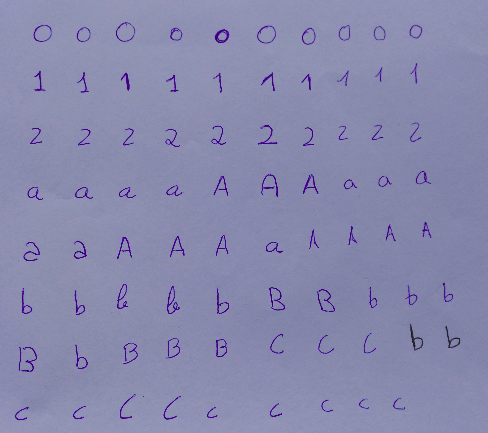 0 0 0 0 0 0 0 0 0 0
1 1 1 1 1 1 1 1 1 1
2 2 2 2 2 2 2 2 2 2
a a a a A A A a a a
a a A A A a A A A A
b b b b b B B b b b
B b B B B C C C b b
c c C C c c c c c